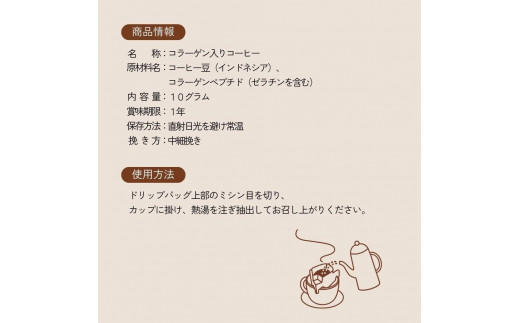 商品情報
名　　称：コラーゲン入りコーヒー
原材料名：コーヒー豆（インドネシア）、
コラーゲンペプチド（ゼラチンを含む）
内 容 量：１０グラム
賞味期限：１年
保存方法：直射日光を避け常温
挽 き 方：中細挽き
使用方法
ドリップバッグ上部のミシン目を切り、
カップに掛け、熱湯を注ぎ抽出してお召し上がりください。